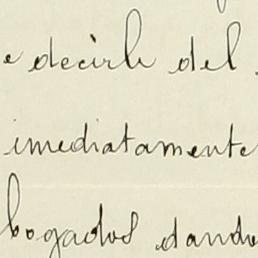 e decirle del
imediatamente
bogados dando